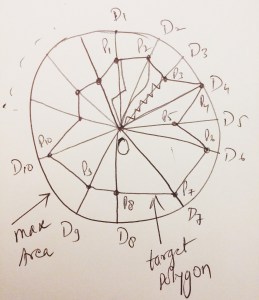 D1
D2
P1
P2
D3
P3
D4
P4
P5
D5
P6
D6
O
P10
D10
P9
P8
P7
D7
D9
D8
max
Area
target
polygon